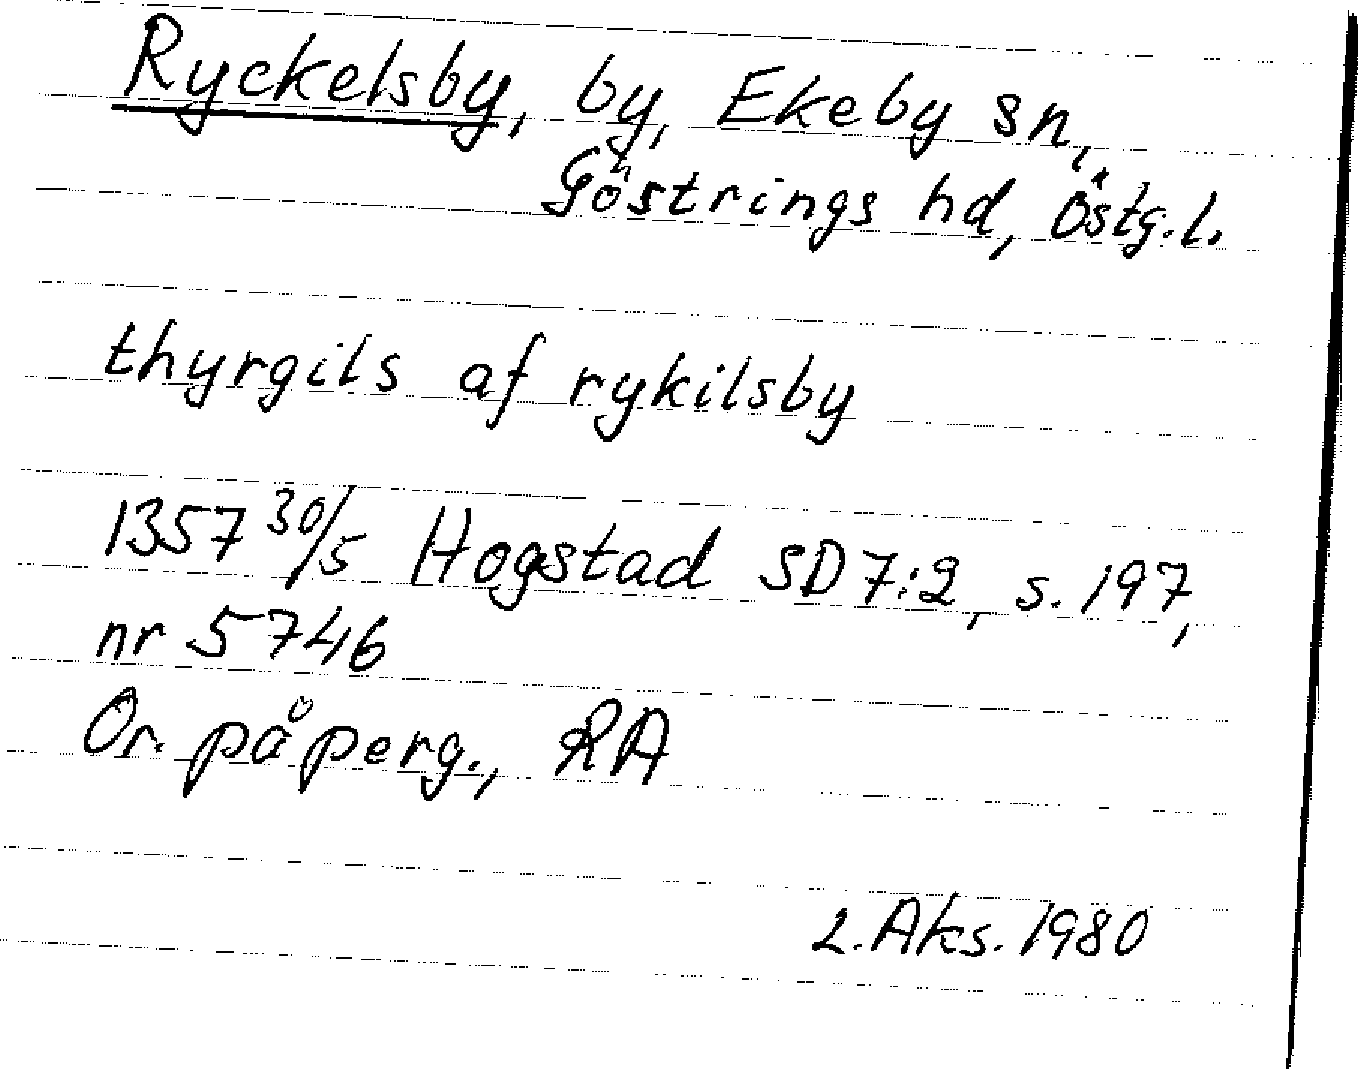 Ryckelsby, by, Ekeby sn,
Göstrings hd, Östg.l.
thyrgils af rykilsby
1357 30/5 Hogstad SD 7:2, s. 197,
nr 5746
Or. på perg., RA
L. Aks. 1980